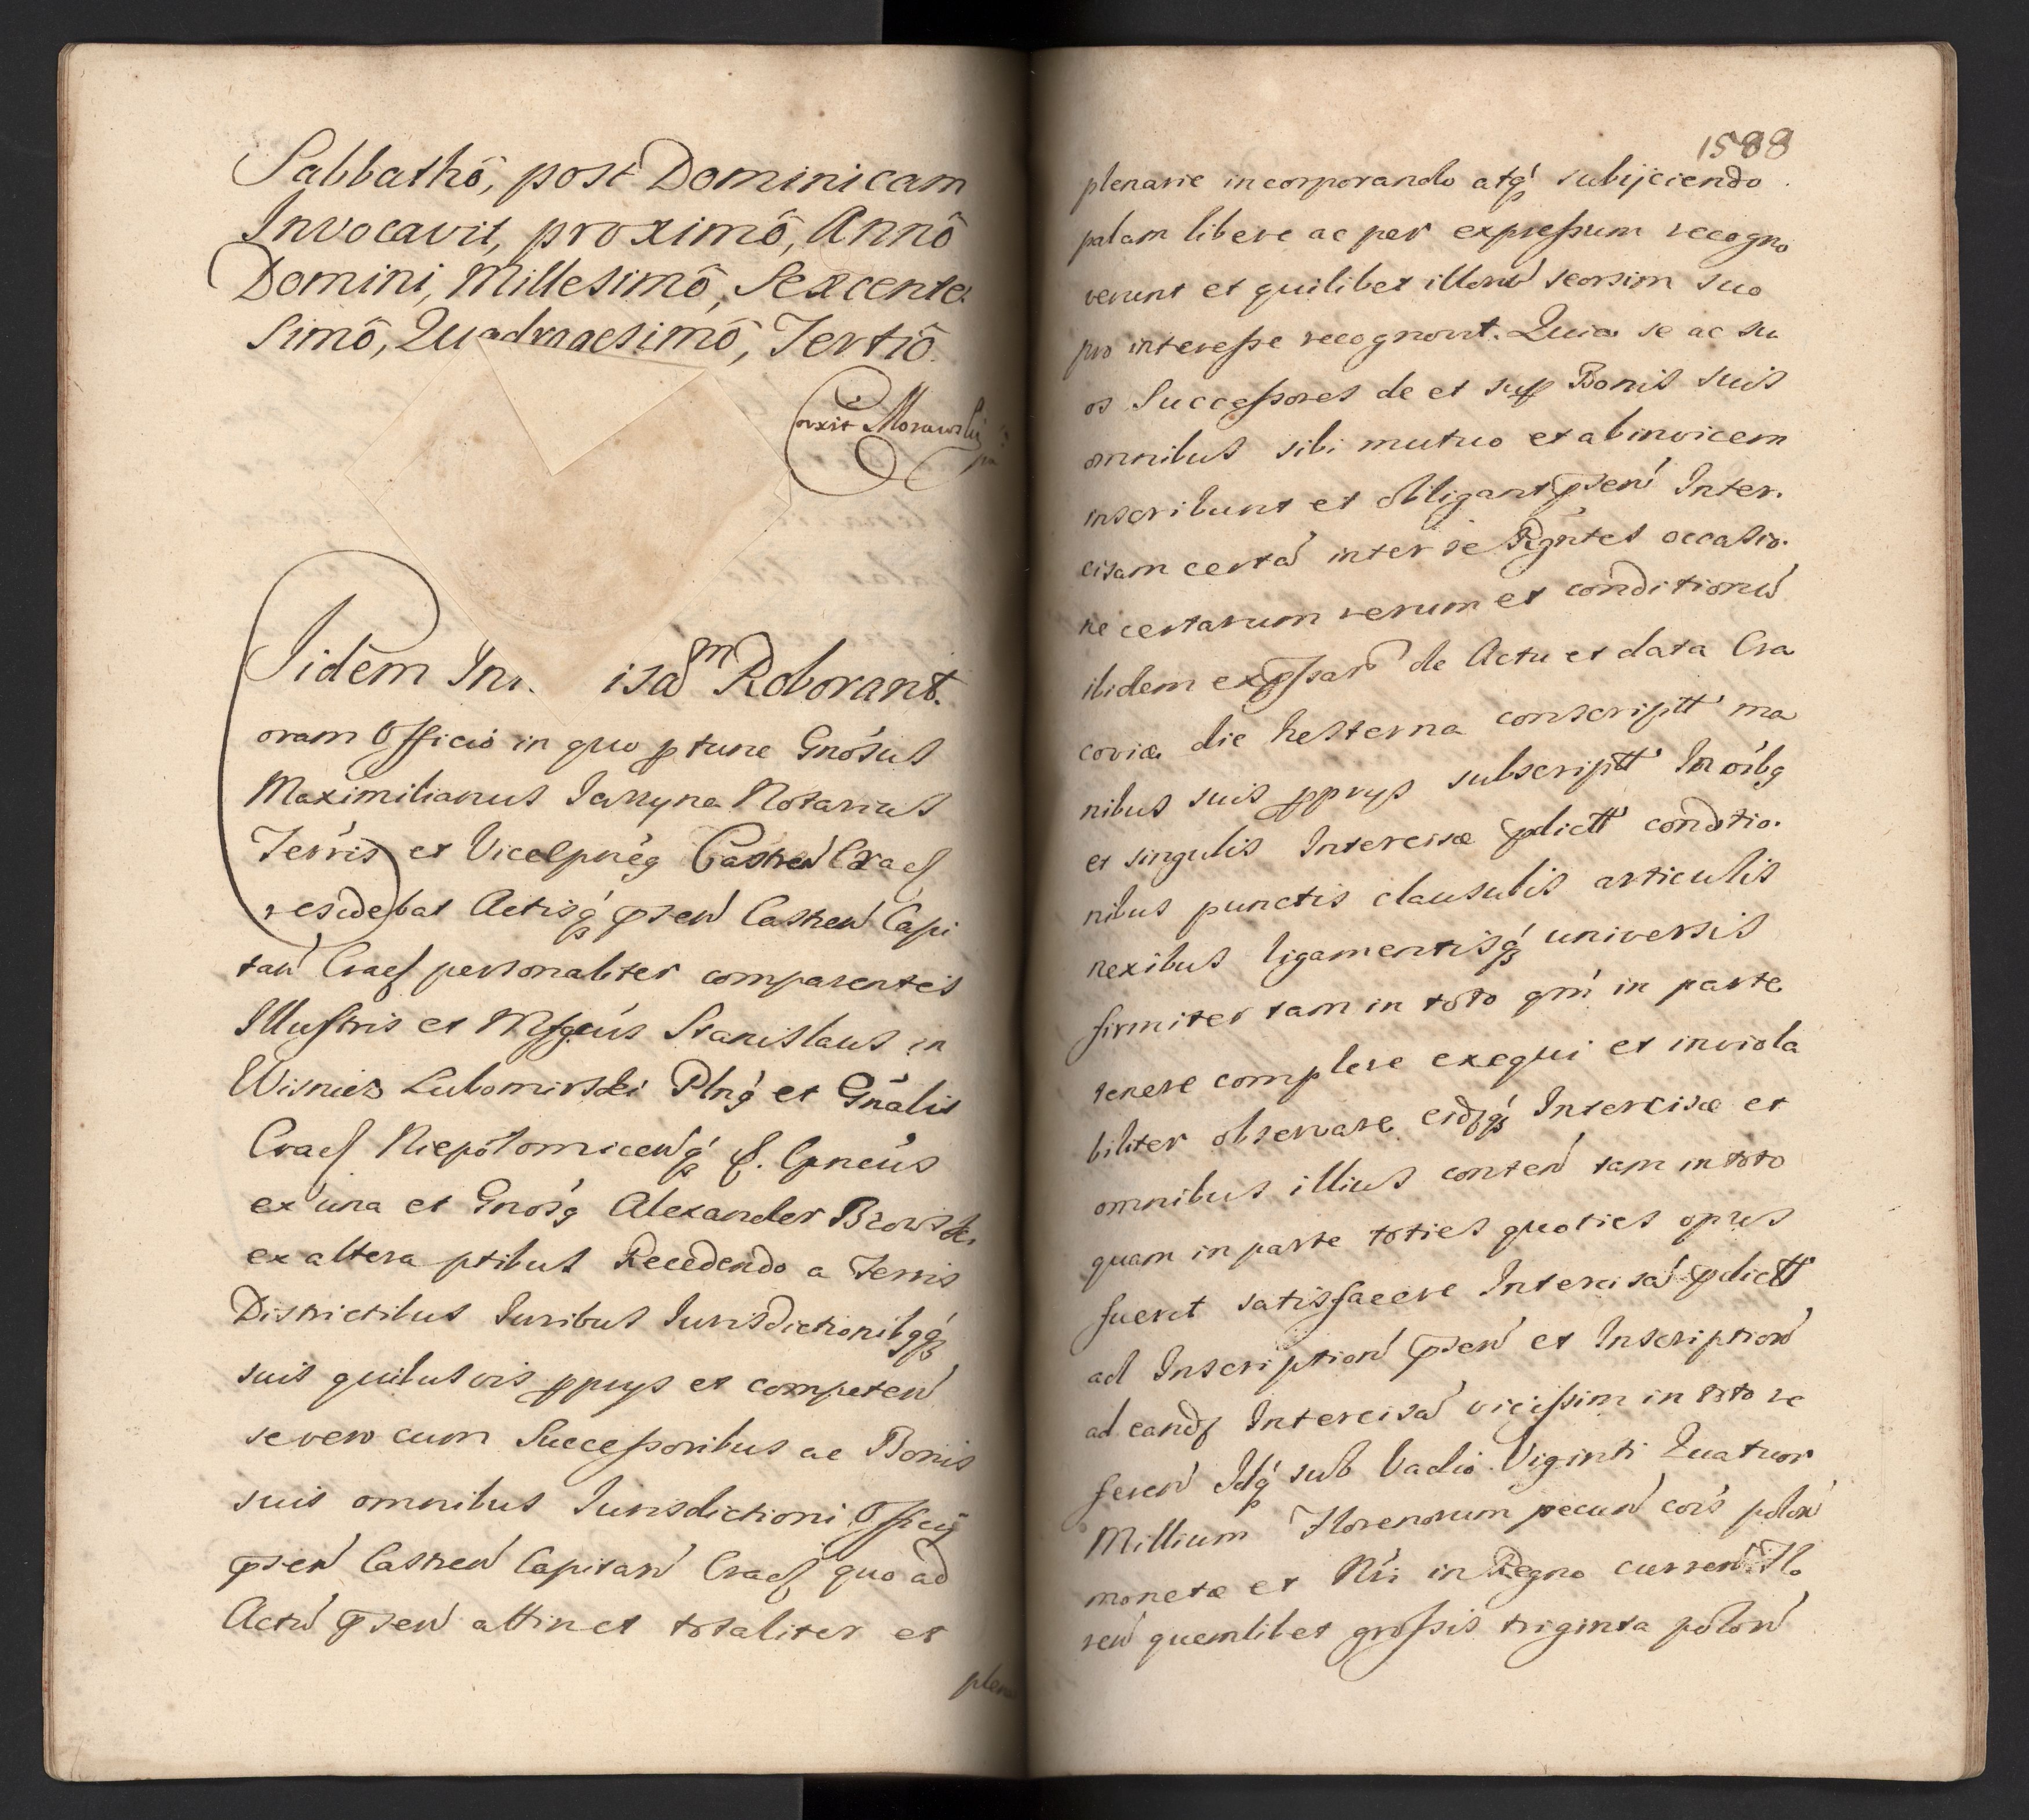 Sabbathô, post Dominicam
Invocavit, proximô, Annô
Domini, Millesimô, Sexcente
simô, Quadragesimô, Tertiô.
Corxit Morawski
Iidem In isam Roborant.
oram Officio in quo ptunc Gnosus
Maximilianus Jarzyna Notarius
Terris et Vicecpneg Castren Cracẜ
residebat Actisq psen Castren Capi
tan Cracẜ personaliter comparentes
Illustris et Mgfcus Stanislaus in
Wisnicz Lubomirski Plng et Gnalis
Cracẜ Niepolomicenq &. Cpneus
ex una et Gnosg Alexander Brows
ex altera ptibus Recedendo a Terris
Districtibus Iuribus Iurisdictionibqq
suis quibusvis pprijs et competen
se vero cum Successoribus ac Bonis
suis omnibus Iurisdictioni Officij
psen Castren Capitan Cracẜ quo ad
Actu psen attinet totaliter et
plen
1588
plenarie incorporando atq subijciendo
palam libere ac per expressum recogno
verunt et quilibet illoru seorsim suo
pro interesse recognovit. Quia se ac su
os Successores de et sup Bonis suis
omnibus sibi mutuo et ab invicem
inscribunt et obligant psen Inter.
cisam certa inter se Rgntes occasio.
ne certarum rerum et conditionu
ibidem expssar de Actu et data Cra
coviæ die hesterna conscriptt ma
nibus suis pprijs subscriptt In oibg
et singulis Intercisæ pdictt conditio.
nibus punctis clausulis articulis
nexibus ligamentisq universis
firmiter tam in toto qm in parte
tenere complere exequi et inviola
biliter observare eidq Intercisæ et
omnibus illius conten tam in toto
quam in parte toties quoties opus
fuerit satisfacere Intercisa pdictt
ad Inscription psen et Inscription
ad eand Intercisa vicissim in toto re
feren Idq sub Vadio Viginti Quatuor
Millium Florenorum pecun cois polon
monetæ et Nri in Regno curren Flo
ren quemlibet grossis triginta polon